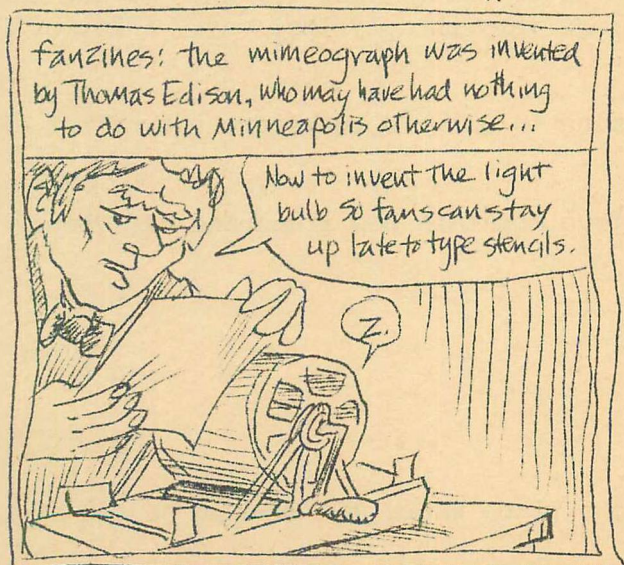 fanzines: the mimeograph was invented
by Thomas Edison, who may have had nothing
to do with Minneapolis otherwise...
Now to invent the light
bulb so fans can stay
up late to type stencils.
Z.